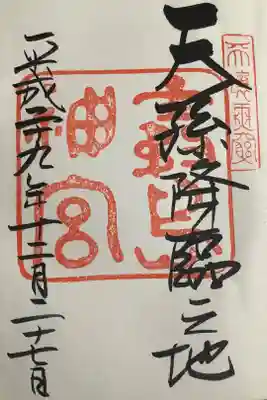 天孫降臨之地
神宮
平成二十九年十二月二十七日